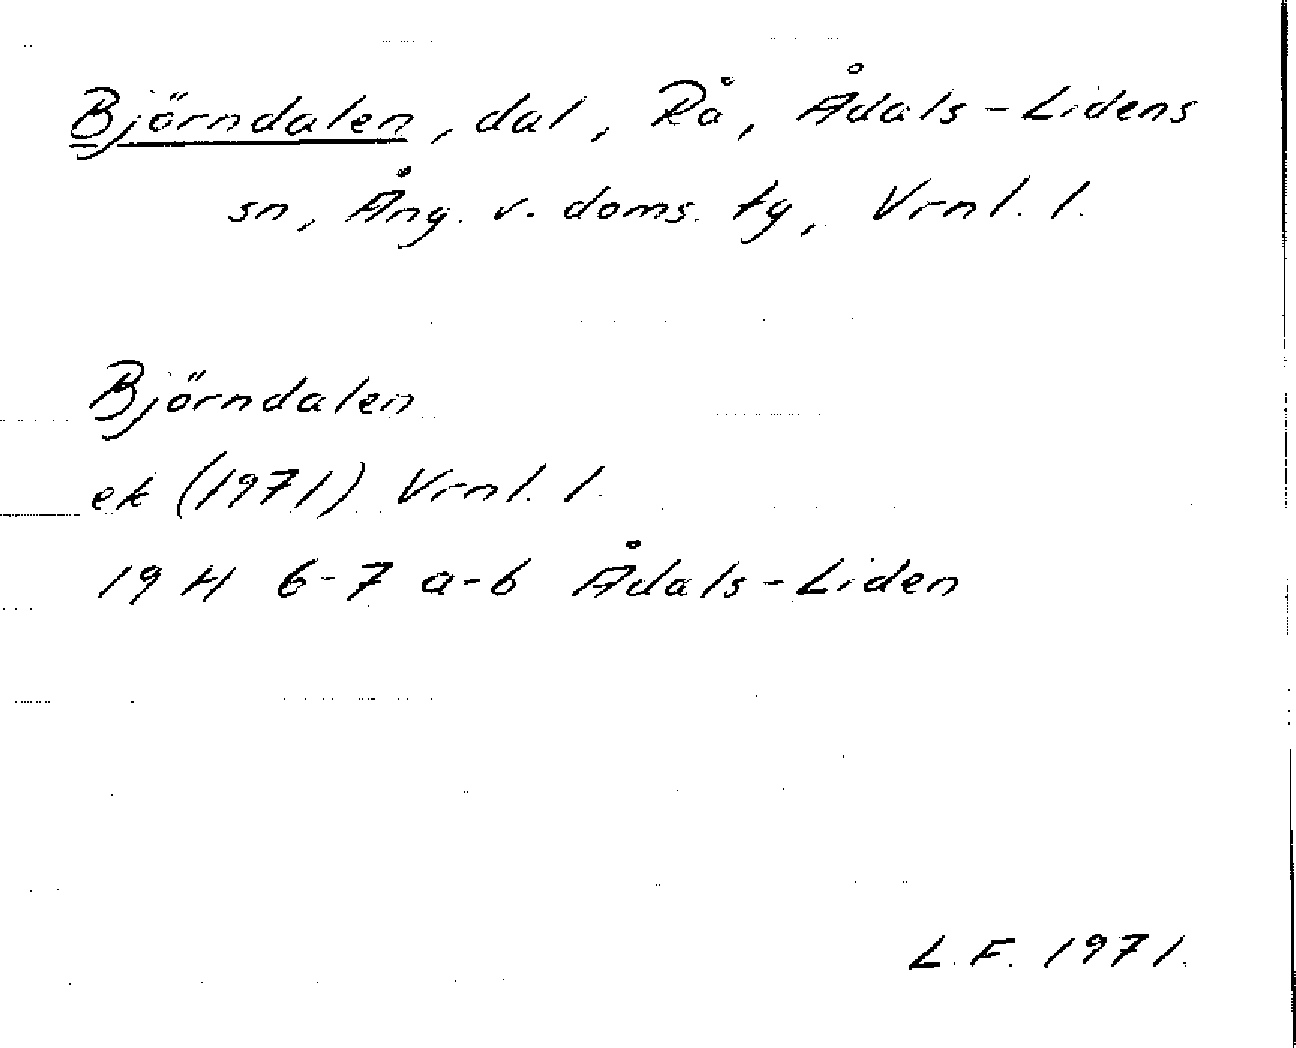 Björndalen, dal, Rå, Ådals-Lidens
sn, Ång. v. doms. tg, Vrnl. l.
Björndalen
ek (1971) Vrnl. l.
19 H 6-7 a-b Ådals-Liden
L.F. 1971.